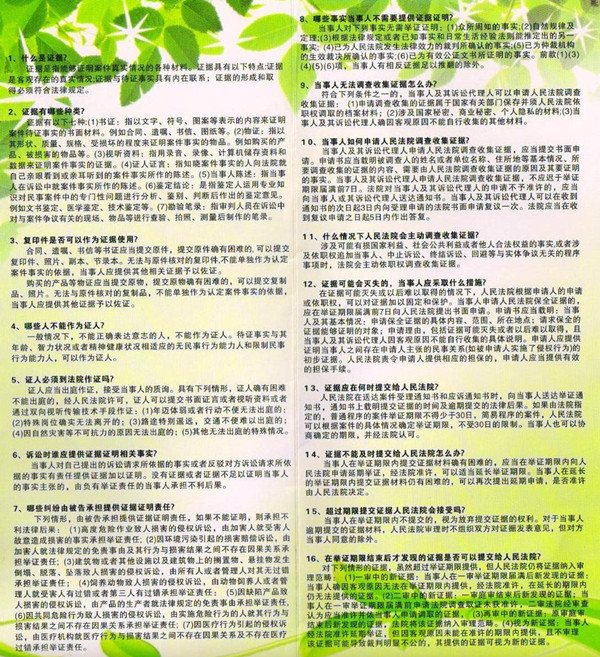 1、什么是证据?
证据是指能够证明案件真实情况的各种材料。证据具有以下特点:证据
是客观存在的真实情况;证据与待证事实具有内在联系;证据的形成和取
得必须符合法律规定。
2、证据有哪些种类?
证据有以下七种:(1)书证:指以文字、符号、图案等表示的内容来证明
案件待证事实的书面材料。例如合同、遗嘱、书信、图纸等。(2)物证:指以
其形状、质量、规格、受损坏的程度来证明案件事实的物品。例如购买的产
品、被损害的物品等。(3)视听资料:指用录音、录像、计算机储存资料和
数据来证明案件事实的证据。(4)证人证言:指知晓案件实情的人向法院就
自己亲眼看到或亲耳听到的案件事实所作的陈述。(5)当事人陈述:指当事
人在诉讼中就案件事实所作的陈述。(6)鉴定结论:是指鉴定人运用专业知
识对民事案件中的专门性问题进行分析、鉴别、判断后作出的鉴定意见。
例如文书鉴定、医学鉴定、技术鉴定等。(7)勘验笔录:指审判人员在诉讼中
对与案件争议有关的现场、物品等进行查验、拍照、测量后制作的笔录。
3、复印件是否可以作为证据使用?
合同、遗嘱、书信等书证应当提交原件,提交原件确有困难的,可以提交
复印件、照片、副本、节录本。无法与原件核对的复印件,不能单独作为认定
案件事实的依据,当事人应提供其他相关证据予以佐证。
购买的产品等物证应当提交原物,提交原物确有困难的,可以提交复制
品、照片。无法与原件核对的复制品,不能单独作为认定案件事实的依据,
当事人应提供其他证据予以佐证。
4、哪些人不能作为证人?
一般情况下,不能正确表达意志的人,不能作为证人。待证事实与其
年龄、智力状况或者精神健康状况相适应的无民事行为能力人和限制民事
行为能力人,可以作为证人。
5、证人必须到法院作证吗?
证人应当出庭作证,接受当事人的质询。具有下列情形,证人确有困难
不能出庭的,经人民法院许可,证人可以提交书面证言或者视听资料或者
通过双向视听传输技术手段作证:(1)年迈体弱或者行动不便无法出庭的;
(2)特殊岗位确实无法离开的;(3)路途特别遥远,交通不便难以出庭的;
(4)因自然灾害等不可抗力的原因无法出庭的;(5)其他无法出庭的特殊情况。
6、诉讼时谁应提供证据证明相关事实?
当事人对自己提出的诉讼请求所依据的事实或者反驳对方诉讼请求所依
据的事实有责任提供证据加以证明。没有证据或者证据不足以证明当事人
的事实主张的,由负有举证责任的当事人承担不利后果。
7、哪些纠纷由被告承担提供证据证明责任?
下列情形,由被告承担提供证据证明责任,如果不能证明,则承担不
利法律后果:(1)高度危险作业致人损害的侵权诉讼,由加害人就受害人
故意造成损害的事实承担举证责任;(2)因环境污染引起的损害赔偿诉讼,由
加害人就法律规定的免责事由及其行为与损害结果之间不存在因果关系承
担举证责任;(3)建筑物或者其他设施以及建筑物上的搁置物、悬挂物发生
倒塌、脱落、坠落致人损害的侵权诉讼,由所有人或者管理人对其无过错
承担举证责任;(4)饲养动物致人损害的侵权诉讼,由动物饲养人或者管
理人就受害人有过错或者第三人有过错承担举证责任;(5)因缺陷产品致
人损害的侵权诉讼,由产品的生产者就法律规定的免责事由承担举证责任;
(6)因共同危险行为致人损害的侵权诉讼,由实施危险行为的人就其行为与
损害结果之间不存在因果关系承担举证责任;(7)因医疗行为引起的侵权诉
讼,由医疗机构就医疗行为与损害结果之间不存在因果关系及不存在医疗
过错承担举证责任。
8、哪些事实当事人不需要提供证据证明?
当事人对下列事实无需举证证明:(1)众所周知的事实;(2)自然规律及
定理;(3)根据法律规定或者已知事实和日常生活经验法则能推定出的另一
事实;(4)已为人民法院发生法律效力的裁判所确认的事实;(5)已为仲裁机构
的生效裁决所确认的事实;(6)已为有效公证文书所证明的事实。前款(1)(3)
(4)(5)(6)项,当事人有相反证据足以推翻的除外。
9、当事人无法调查收集证据怎么办?
符合下列条件之一的,当事人及其诉讼代理人可以申请人民法院调查
收集证据:(1)申请调查收集的证据属于国家有关部门保存并须人民法院依
职权调取的档案材料;(2)涉及国家秘密、商业秘密、个人隐私的材料;(3)当
事人及其诉讼代理人确因客观原因不能自行收集的其他材料。
10、当事人如何申请人民法院调查收集证据?
当事人及其诉讼代理人申请人民法院调查收集证据,应当提交书面申
请。申请书应当载明被调查人的姓名或者单位名称、住所地等基本情况、所
要调查收集的证据的内容、需要由人民法院调查收集证据的原因及其要证
明的事实。当事人及其诉讼代理人申请人民法院调查收集证据,不应迟于举证
期限届满前7日。法院对当事人及其诉讼代理人的申请不予准许的,应当
向当事人或其诉讼代理人送达通知书。当事人及其诉讼代理人可以在收到
通知书的次日起3日内向受理申请的法院书面申请复议一次。法院应当在收
到复议申请之日起5日内作出答复。
11、什么情况下人民法院会主动调查收集证据?
涉及可能有损国家利益、社会公共利益或者他人合法权益的事实,或者涉
及依职权追加当事人、中止诉讼、终结诉讼、回避等与实体争议无关的程序
事项时,法院会主动依职权调查收集证据。
12、证据可能会灭失的,当事人应采取什么措施?
在证据可能灭失或以后难以取得的情况下,人民法院根据申请人的申请
或依职权,可以对证据加以固定和保护。当事人申请人民法院保全证据的,
应在举证期限届满前7日向人民法院提出书面申请。申请书应当载明:当事
人及其基本情况;申请保全证据的具体内容、范围、所在地点;请求保全的
证据能够证明的对象;申请理由,包括证据可能灭失或者以后难以取得,且
当事人及其诉讼代理人因客观原因不能自行收集的具体说明。申请人应提供
证明当事人之间存在申请人主张的民事关系(如被申请人实施了侵权行为)的
初步证据。人民法院责令申请人提供相应的担保的,申请人应当提供有效
的担保手续。
13、证据应在何时提交给人民法院?
人民法院在送达案件受理通知书和应诉通知书时,向当事人送达举证通
知书,通知书上载明提交证据的时间及逾期提交的法律后果。如果由法院指
定的,普通程序的案件举证期限不得少于30日,简易程序的案件,人民法院
可以根据案件的具体情况确定举证期限,不受30日的限制。当事人也可以协
商确定的期限,并经法院认可。
14、证据不能及时提交给人民法院怎么办?
当事人在举证期限内提交证据材料确有困难的,应当在举证期限内向人
民法院申请延期举证,经法院准许,可以适当延长举证期限。当事人在延长
的举证期限内提交证据材料仍有困难的,可以再次提出延期申请,是否准许
由人民法院决定。
15、超过期限提交证据人民法院会接受吗?
当事人在举证期限内不提交的,视为放弃提交证据的权利。对于当事人
逾期提交的证据材料,人民法院审理时不组织双方对证据发表意见,但对方
当事人同意的除外。
16、在举证期限结束后才发现的证据是否可以提交给人民法院?
对下列情形的证据,虽然超过举证期限提供,但人民法院仍将证据纳入审
理范畴:(1)一审中的新证据:当事人在一审举证期限届满后新发现的证据;当
事人确因客观原因无法在举证期限内提供,经法院准许,在延长的期限内
仍无法提供的证据。(2)二审中的新证据:一审庭审结束后新发现的证据;当
事人在一审举证期限届满前申请法院调查取证未获准许,二审法院经审查
认为应当准许并依当事人申请调取的证据。(3)再审中的新证据:原审庭审
结束后新发现的证据,法院将该证据纳入审理范畴。(4)视为新证据:当事人
经法院准许延期举证,但因客观原因未能在准许的期限内提供,且不审理
该证据可能导致裁判明显不公的,其提供的证据可视为新的证据。